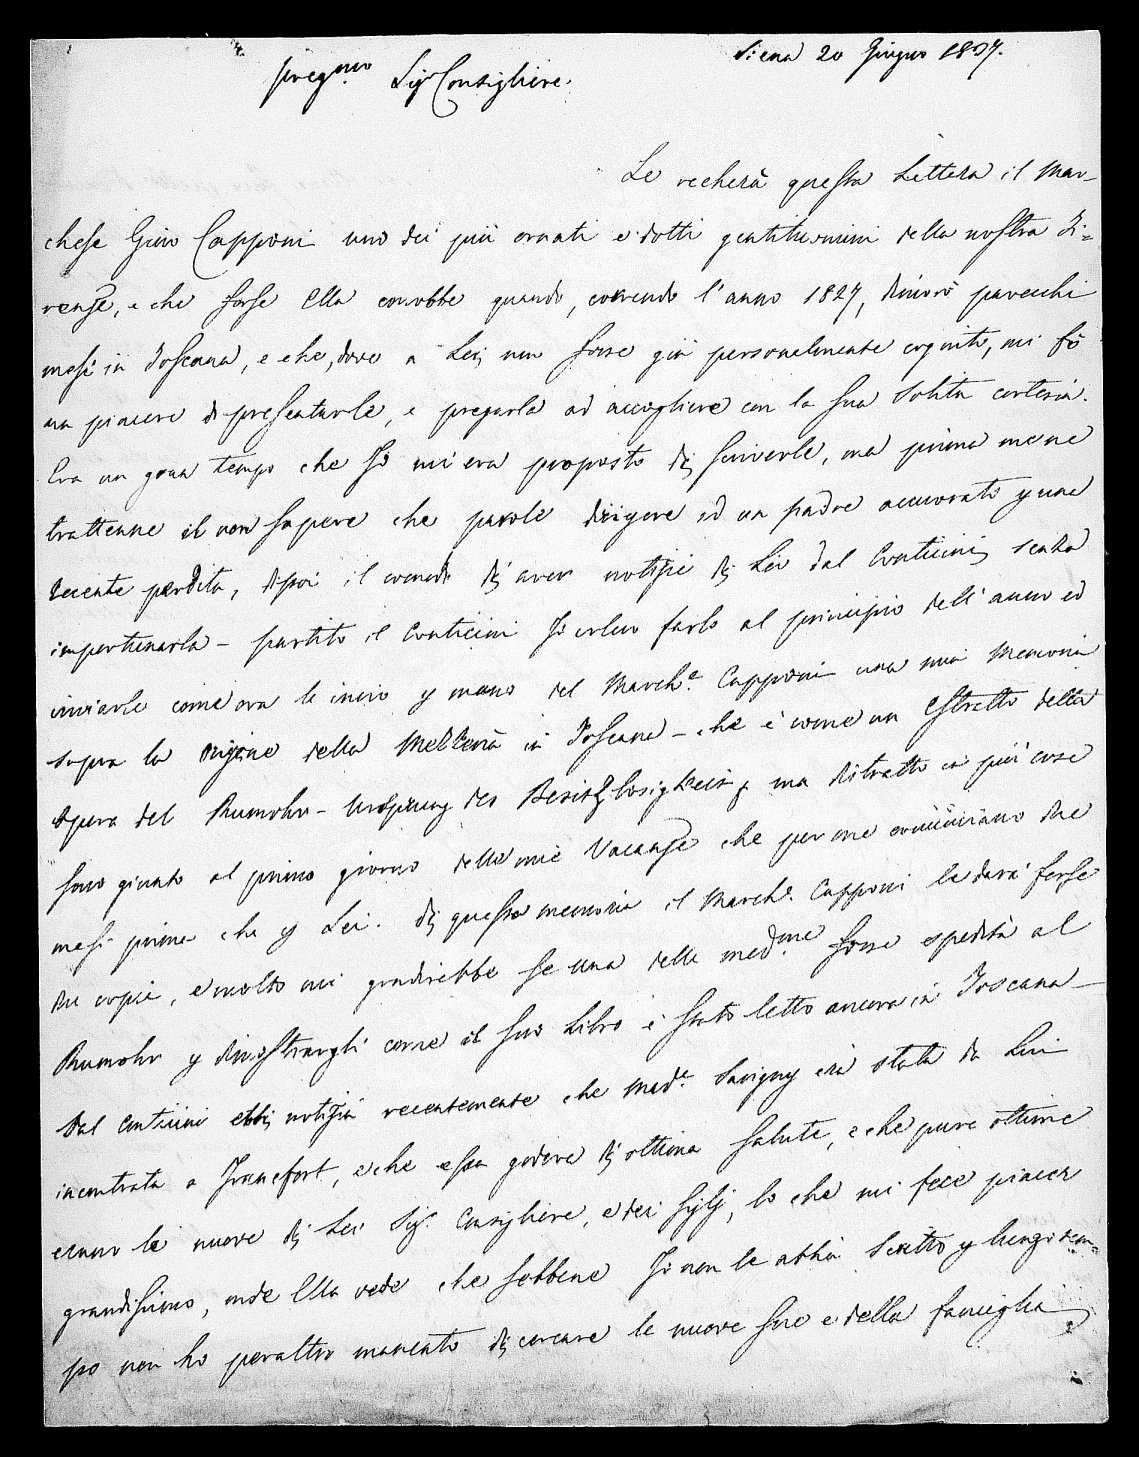 Siena 20 Giugno 1837.
Pregmo Sigr Consigliere.
Le recherà questa Lettera il Mar-
chese Gino Capponi uno dei più ornati e dotti gentiluomini della nostra Fi-
renze, e che forse Ella conobbe quando, correndo l'anno 1827, dimorò parecchi
mesi in Toscana, e che, dove a Lei non fosse già personalmente cognito, mi fò
un piacere di presentarle, e pregarla ad accogliere con la sua solita cortesia.
Era un gran tempo che Io mi era proposto di scriverle, ma prima me ne
trattenne il non sapere che parole dirigere ad un padre accuorato p una
recente perdita, dipoi il comodo di aver notizie di Lei dal Conticini senza
importunarla – partito il Conticini Io volevo farlo al principio dell'anno ed
inviarle come ora le invio p mano del March.e Capponi una mia Memoria
sopra la origine della Mezzeria in Toscana – che è come un Estratto della
Opera del Rumohr – Ursprung der Besitzlosigkeit, ma distratto in più cose
sono giunto al primo giorno delle mie Vacanze che per me cominciano due
mesi prima che p Lei. Di questa memoria il March.e Capponi le darà forse
due copie, e molto mi gradirebbe se una delle medme fosse spedita al
Rumohr p dimostrargli come il suo Libro è stato letto ancora in Toscana –
Dal Conticini ebbi notizia recentemente che Mad.e Savigny era stata da Lui
incontrata a Francfort, e che essa godeva di ottima salute, e che pure ottime
erano le nuove di Lei Sigr Consigliere, e dei figlj, lo che mi fece piacer
grandissimo, onde Ella vede che sebbene Io non le abbia scritto p lungo tem-
po non ho peraltro mancato di cercare le nuove sue e della famiglia